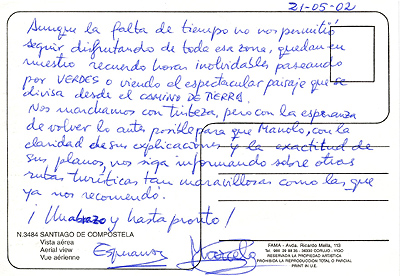 21-05-02
Aunque la falta de tiempo no nos permitió
seguir disfrutando de toda esa zona, quedan en
nuestro recuerdo horas inolvidables paseando
por VERDES o viendo el espectacular paisaje que se
divisa desde el CAMINO DE TIERRA.
Nos marchamos con tristeza, pero con la esperanza
de volver lo antes posible para que Manolo, con la
claridad de sus explicaciones y la exactitud de
sus planos, nos siga informando sobre otras
rutas turísticas tan maravillosas como las que
ya nos recomendó.
¡Un abrazo y hasta pronto!
N.3484 SANTIAGO DE COMPOSTELA
Vista aérea
Aerial view
Vue aérienne
Esperanza Marcelo
FAMA - Avda. Ricardo Mella, 113
36330 CORUJO - VIGO
RESERVADA LA PROPIEDAD ARTISTICA
PROHIBIDA LA REPRODUCCION TOTAL O PARCIAL
PRINT IN U.E.